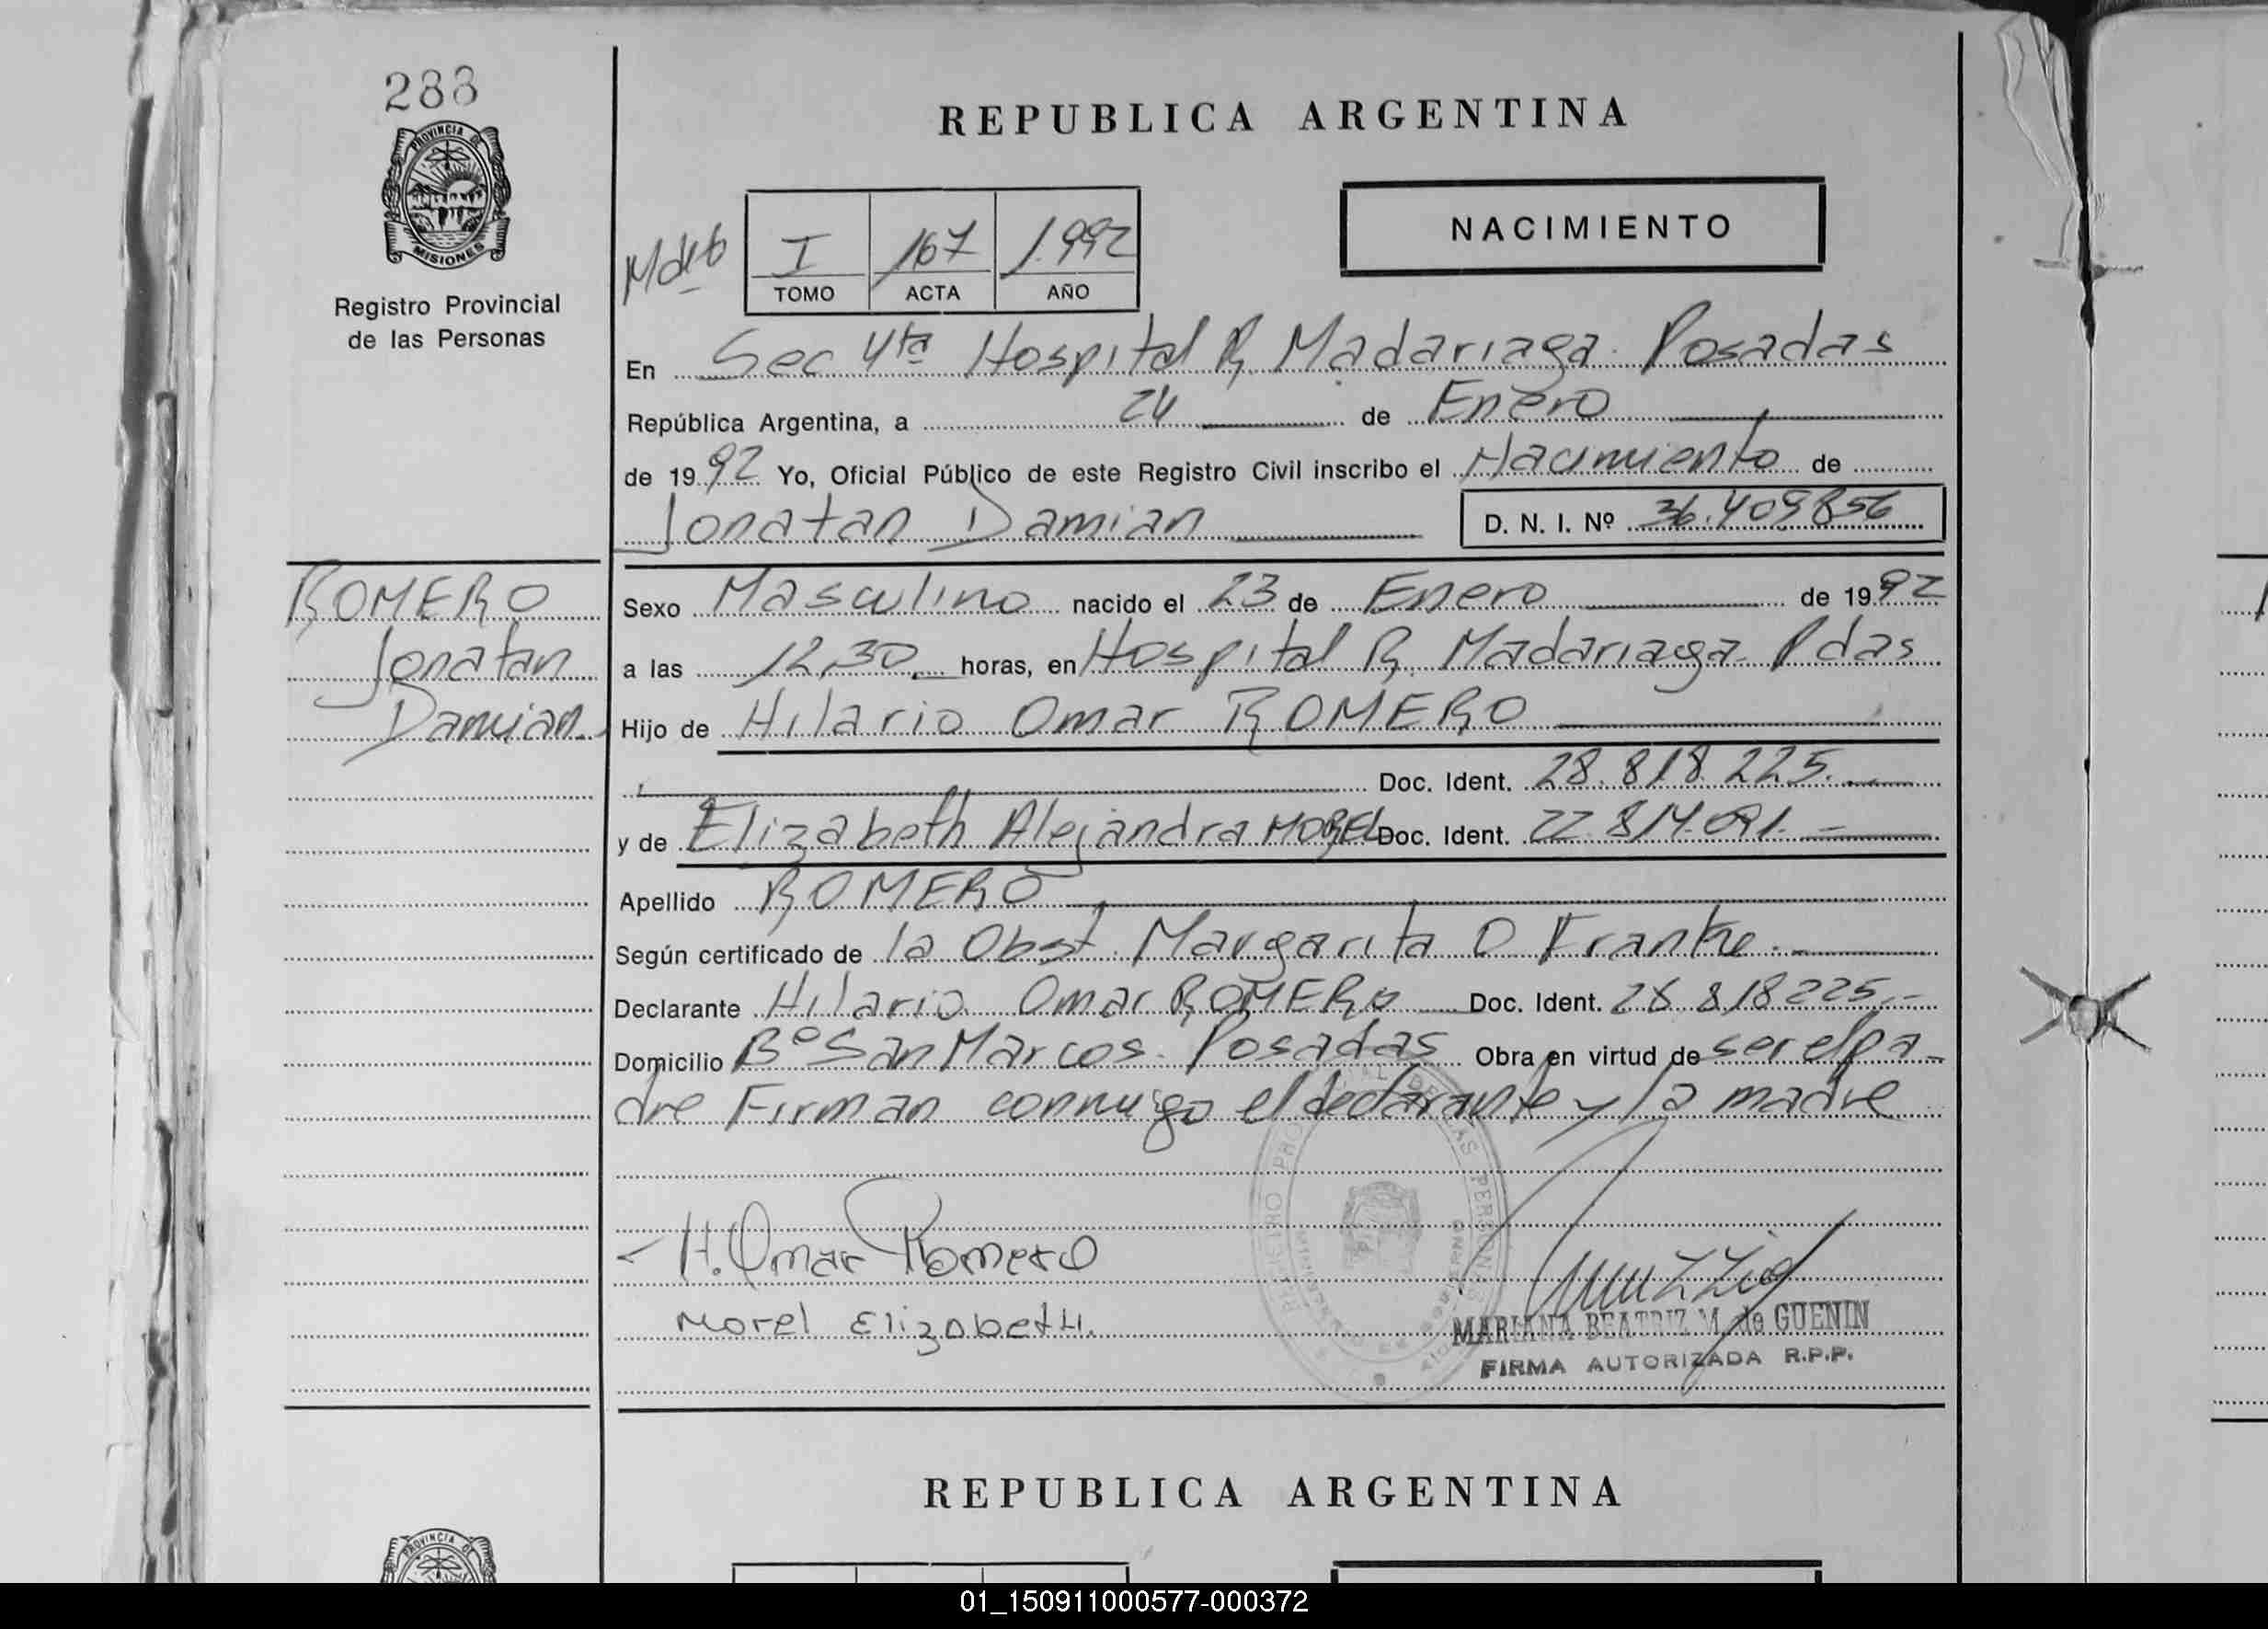 288
PROVINCIA DE
MISIONES
Registro Provincial
de las Personas
REPUBLICA ARGENTINA
NACIMIENTO
I 167 1.992
TOMO ACTA AÑO
En Sec 4ta Hospital R. Madariaga. Posadas
República Argentina, a 24 de Enero
de 1992 Yo, Oficial Público de este Registro Civil inscribo el Nacimiento de
Jonatan Damian
D. N. I. Nº 36.409856
ROMERO
Jonatan
Damian.
Sexo Masculino nacido el 23 de Enero de 1992
a las 12,30 horas, en Hospital R. Madariaga. Pdas
Hijo de Hilario Omar ROMERO
Doc. Ident. 28.818.225.
y de Elizabeth Alejandra MOREL Doc. Ident. 22.814.091.
Apellido ROMERO
Según certificado de la Obst. Margarita O Franke.
Declarante Hilario Omar ROMERO Doc. Ident. 28 818225.-
Domicilio Bº San Marcos. Posadas Obra en virtud de ser el pa-
dre Firman conmigo el declarante y la madre
H. Omar Romero
Morel Elizabeth.
MARIANA BEATRIZ M. de GUENIN
FIRMA AUTORIZADA R.P.P.
REPUBLICA ARGENTINA
PROVINCIA DE
01_150911000577-000372